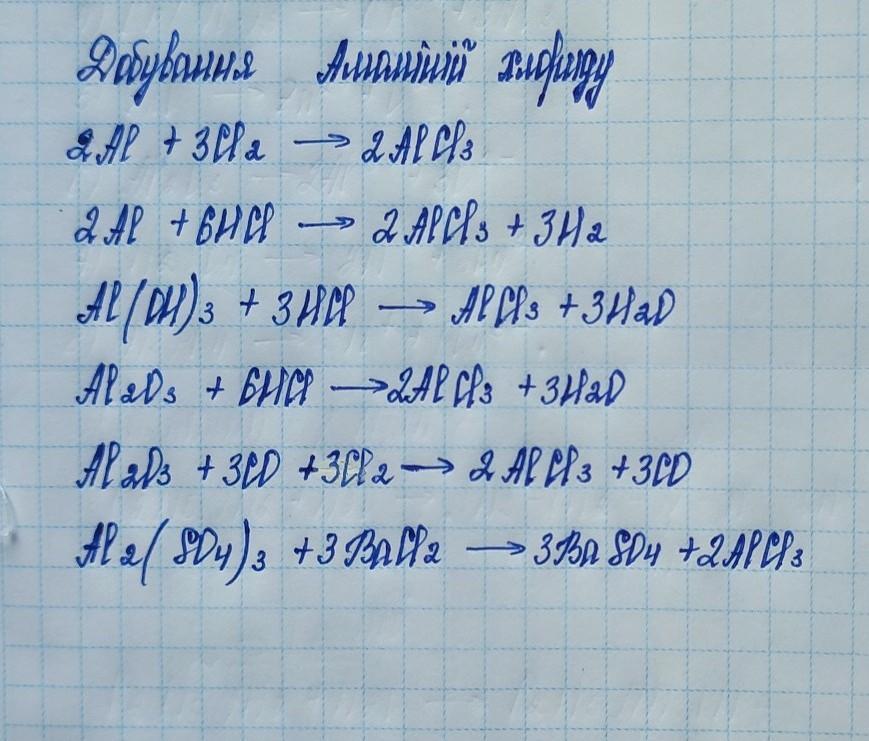 Добування Алюміній хлориду
2Al + 3Cl2 → 2AlCl3
2Al + 6HCl → 2AlCl3 + 3H2
Al(OH)3 + 3HCl → AlCl3 + 3H2O
Al2O3 + 6HCl → 2AlCl3 + 3H2O
Al2O3 + 3CO + 3Cl2 → 2AlCl3 + 3CO
Al2(SO4)3 + 3BaCl2 → 3BaSO4 + 2AlCl3